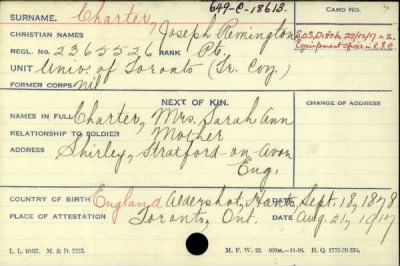 649-C-18613.
SURNAME. Charter, CARD NO.
CHRISTIAN NAMES Joseph Remington
REGL. NO. 2365526 RANK Pte.
S.O.S. Disch 28/12/17
Equipment Officer in R.F.C.
UNIT Univ. of Toronto (Tr. Coy.)
FORMER CORPS Nil
NEXT OF KIN. CHANGE OF ADDRESS
NAMES IN FULL Charter, Mrs. Sarah Ann
RELATIONSHIP TO SOLDIER Mother
ADDRESS Shirley, Stratford-on-Avon
Eng.
COUNTRY OF BIRTH England Aldershot, Hants DATE Sept. 18, 1878
PLACE OF ATTESTATION Toronto, Ont. DATE Aug. 21, 1917
L. L. M. & D. M. F. W. 22. H. Q.